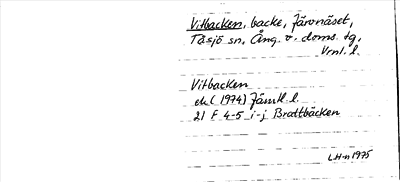 Vitbacken, backe, Järvnäset,
Tåsjö sn, Ång. v. doms. tg,
Vrnl. l.
Vitbacken
ek (1974) Jämtl. l.
21 F 4-5 i-j Brattbäcken
LHn 1975